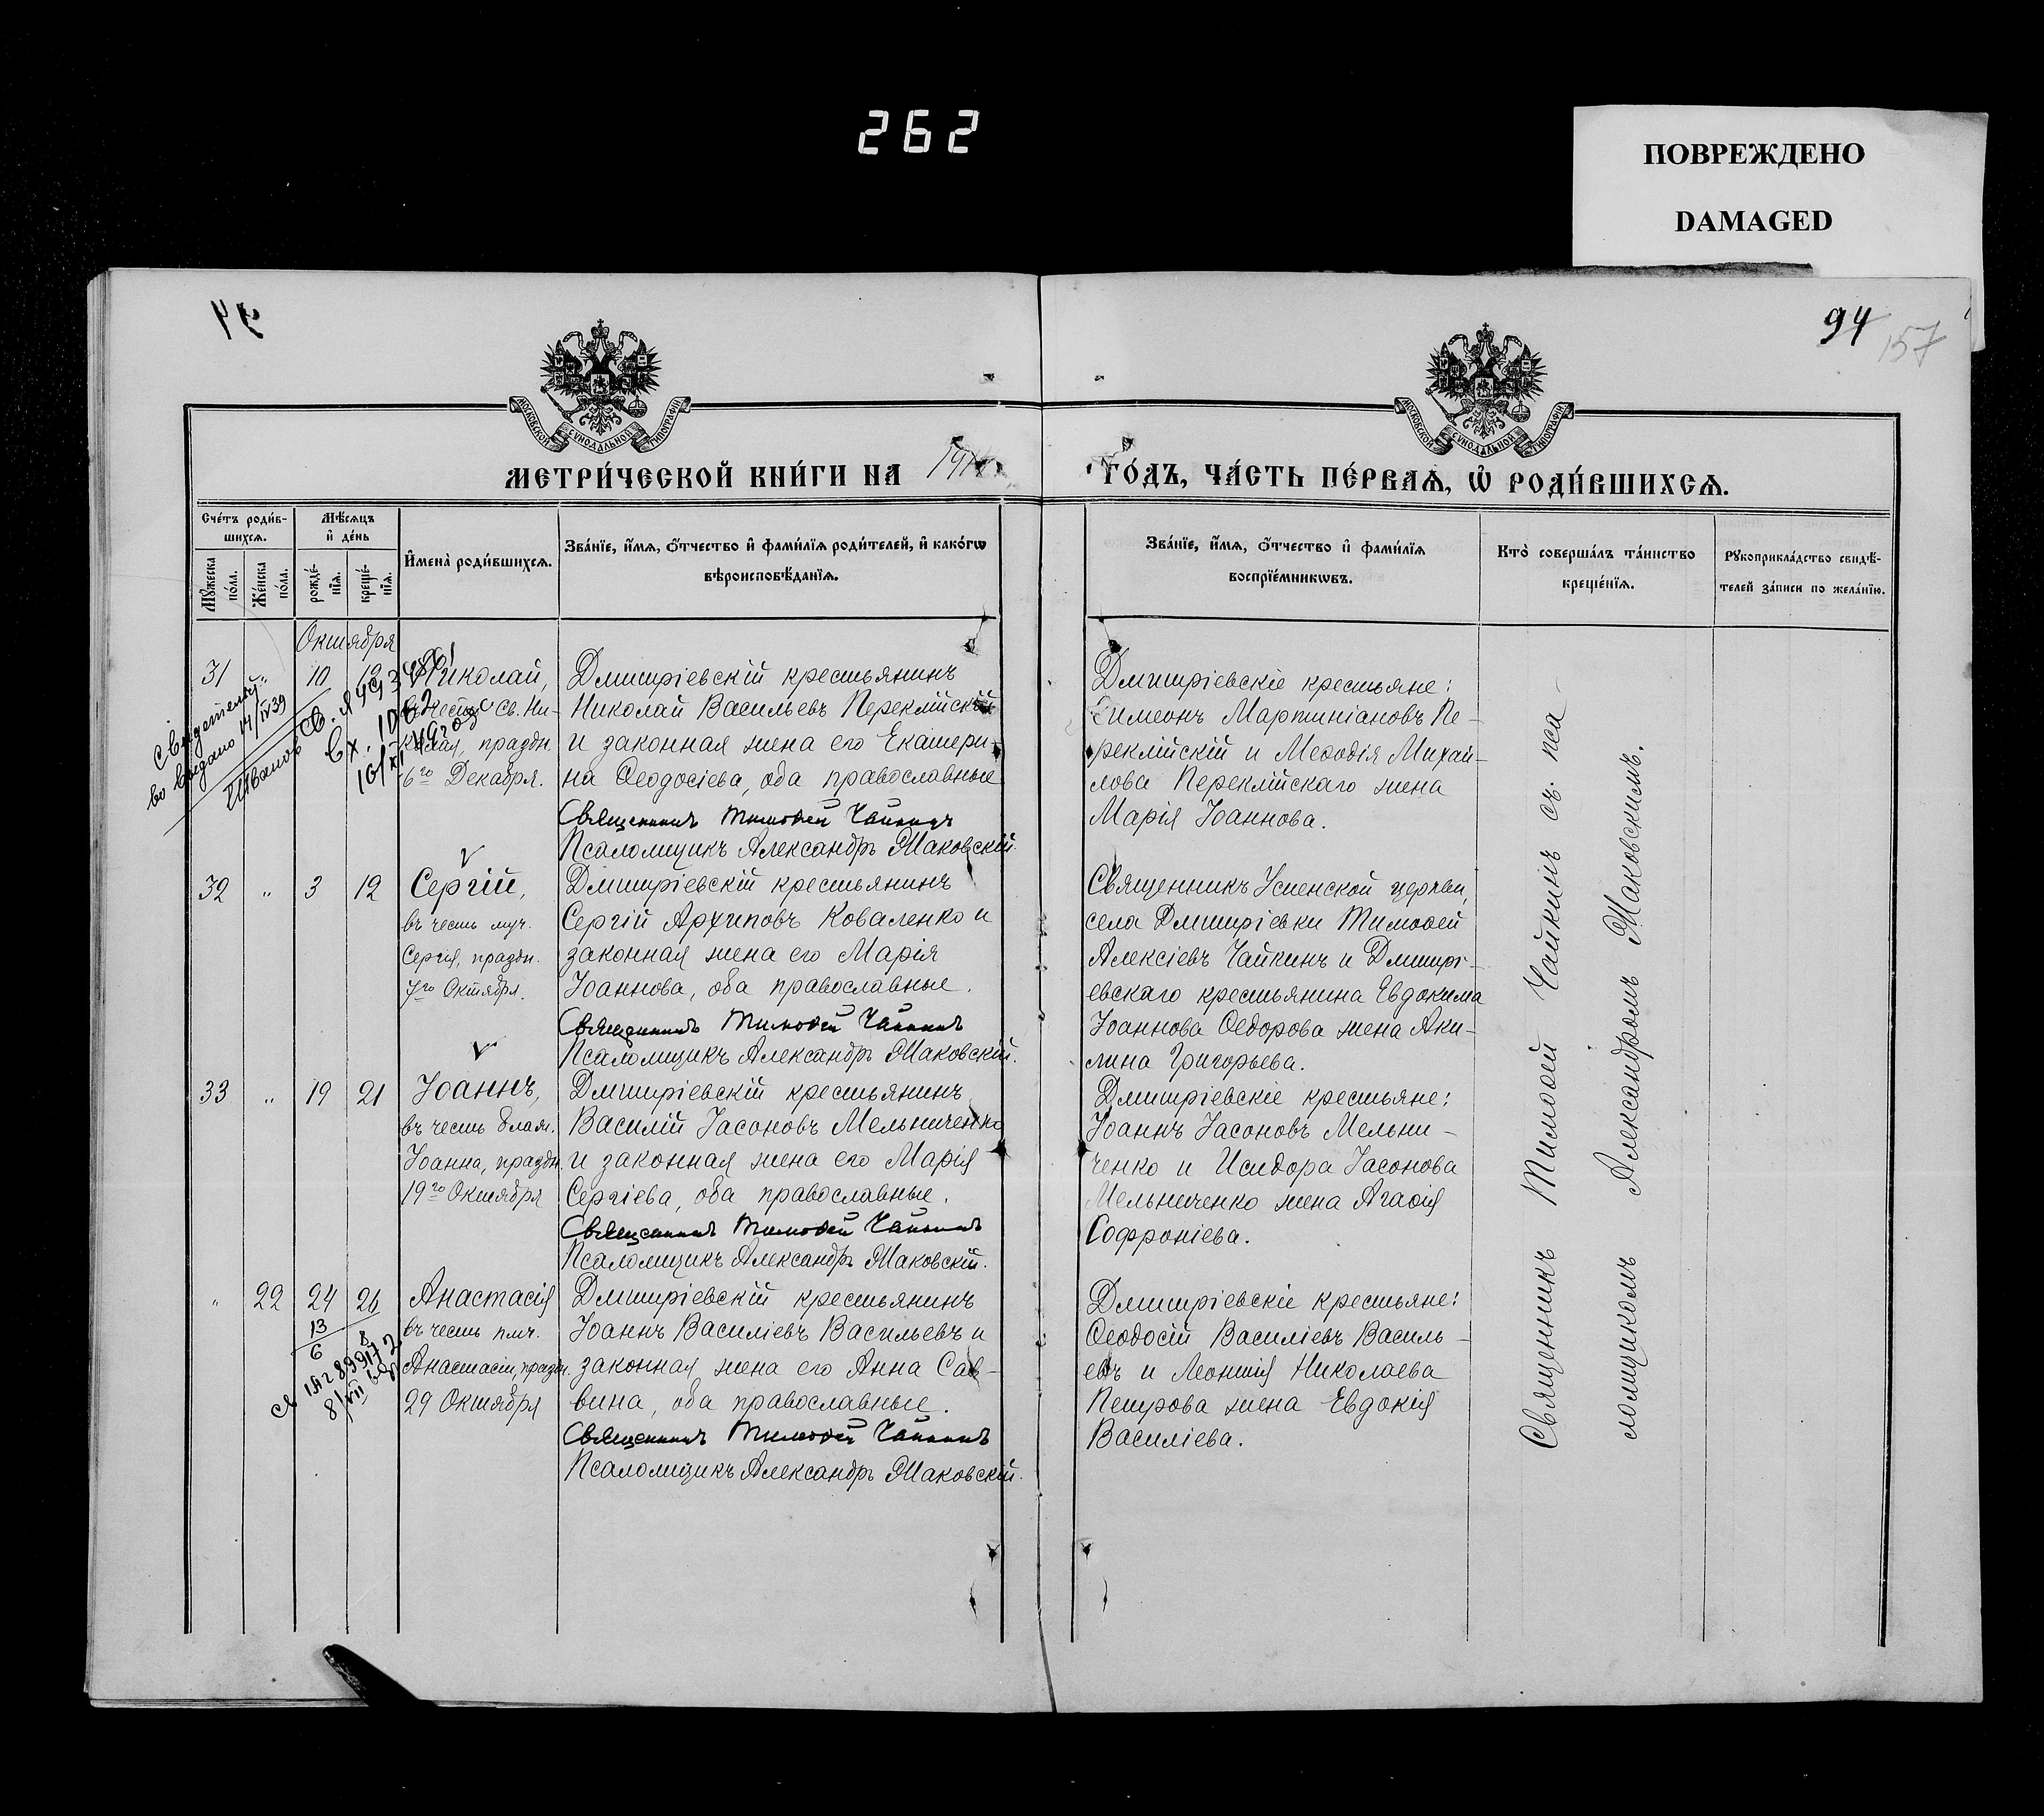 262
ПОВРЕЖДЕНО
DAMAGED
94
157
МОСКОВСКОЙ СУНОДАЛЬНОЙ ТИПОГРАФІИ
МОСКОВСКОЙ СУНОДАЛЬНОЙ ТИПОГРАФІИ
МЕТРИ́ЧЕСКОЙ КНИ́ГИ НА
ГО́ДЪ, ЧА́СТЬ ПЕ́РВАѦ, Ѡ҆ РОДИ́ВШИХСѦ.
Счётъ роди́в-
шихсѧ.
Мѣ́сѧцъ
и҆ де́нь
Мꙋ́жеска по́ла.
Же́нска по́ла.
рожде́-
нїѧ.
креще́-
нїѧ.
И҆мена̀ роди́вшихсѧ.
Зва́нїе, и҆́мѧ, ѻ҆́тчество и҆ фами́лїѧ роди́телей, и҆ како́гѡ
вѣроисповѣ́данїѧ.
Зва́нїе, и҆́мѧ, ѻ҆́тчество и҆ фами́лїѧ
воспрїе́мникѡвъ.
Кто̀ соверша́лъ та́инство
креще́нїѧ.
Рꙋкоприкла́дство свидѣ́-
телей за́писи по жела́нїю.
Октября
31 " 10 12 Николай,
въ честь Св. Ни-
колая, праздн.
6го Декабря.
Дмитріевскій крестьянинъ
Николай Васильевъ Переклійскій
и законная жена его Екатери-
на Ѳеодосіева, оба православные
Священникъ Тимоѳей Чайкинъ
Псаломщикъ Александръ Маковскій.
Дмитріевскіе крестьяне:
Симеонъ Мартиніановъ Пе-
реклійскій и Меѳодія Михай-
лова Переклійскаго жена
Марія Іоаннова.
Свидетельст-
во выдано 14/IV 39
32 " 3 12 Сергій,
въ честь муч.
Сергія, праздн.
7го Октября.
Дмитріевскій крестьянинъ
Сергій Архиповъ Коваленко и
законная жена его Марія
Іоаннова, оба православные.
Священникъ Тимоѳей Чайкинъ
Псаломщикъ Александръ Маковскій.
Священникъ Успенской церкви,
села Дмитріевки Тимоѳей
Алексіевъ Чайкинъ и Дмитрі-
евскаго крестьянина Евдокима
Іоаннова Ѳедорова жена Аки-
лина Григорьева.
33 " 19 21 Іоаннъ,
въ честь блаж.
Іоанна, праздн.
19го Октября
Дмитріевскій крестьянинъ
Василій Іасоновъ Мельниченко
и законная жена его Марія
Сергіева, оба православные.
Священникъ Тимоѳей Чайкинъ
Псаломщикъ Александръ Маковскій.
Дмитріевскіе крестьяне:
Іоаннъ Іасоновъ Мельни-
ченко и Исидора Іасонова
Мельниченко жена Агаѳія
Софроніева.
" 22 24 26 Анастасія
въ честь пмч.
Анастасіи, праздн.
29 Октября
Дмитріевскій крестьянинъ
Іоаннъ Василіевъ Васильевъ и
законная жена его Анна Сав-
вина, оба православные.
Священникъ Тимоѳей Чайкинъ
Псаломщикъ Александръ Маковскій.
Дмитріевскіе крестьяне:
Ѳеодосій Василіевъ Василь-
евъ и Леонтія Николаева
Петрова жена Евдокія
Василіева.
13
6
Священникъ Тимоѳей Чайкинъ съ пса-
ломщикомъ Александромъ Маковскимъ.